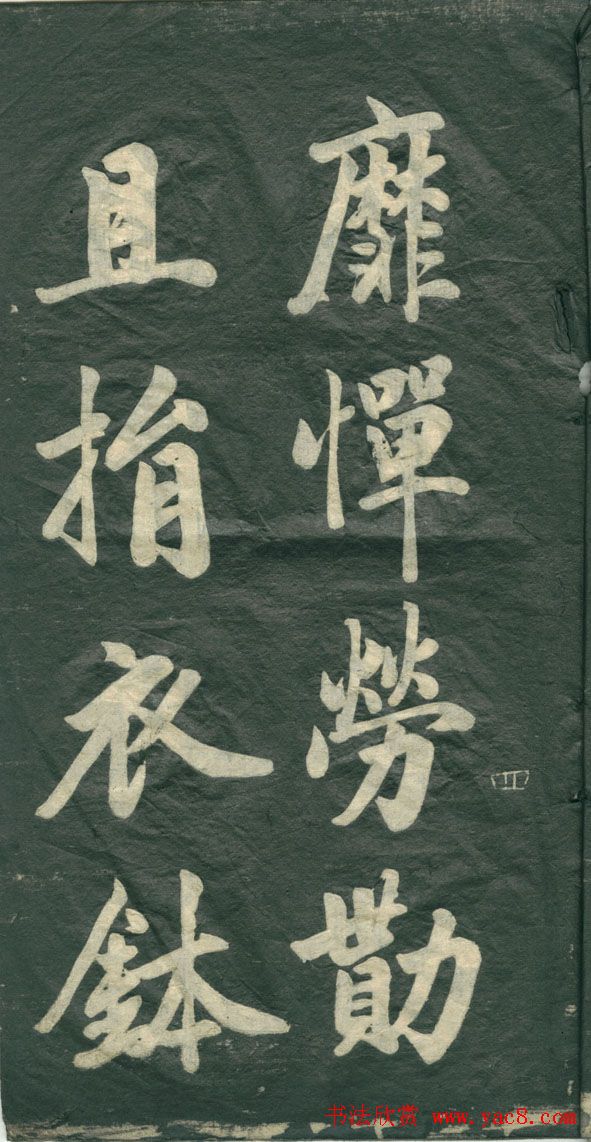 靡憚勞勩
且捐衣鉢
四
书法欣赏 www.yac8.com